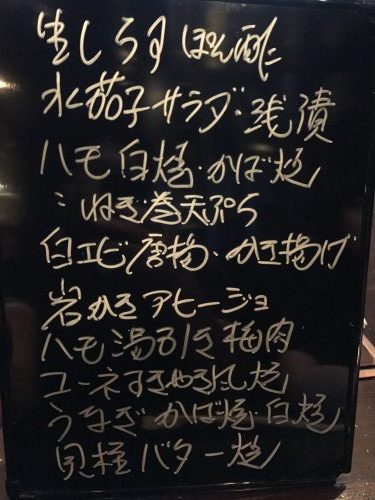 生しらす ぽん酢
水茄子サラダ・浅漬
ハモ白焼・かば焼
〃ねぎ巻天ぷら
白エビ唐揚・かき揚げ
岩かきアヒージョ
ハモ湯引き梅肉
うなぎ かば焼・白焼
貝柱バター焼